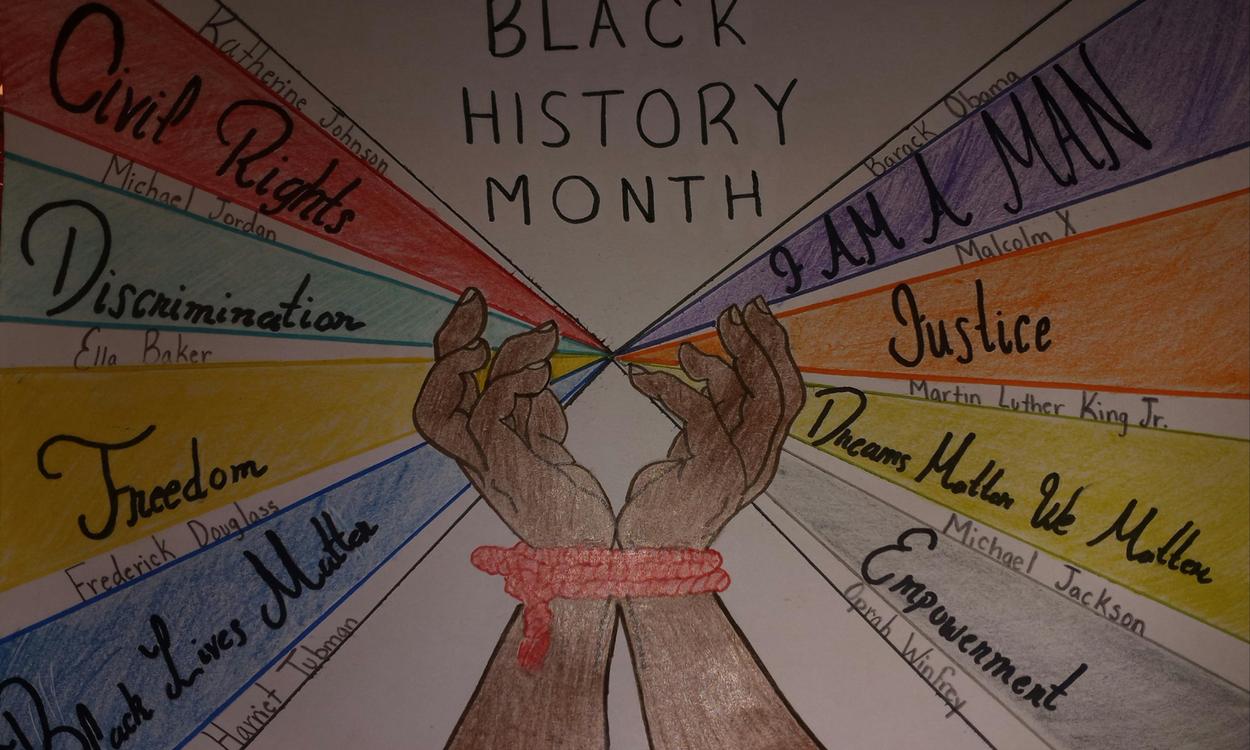 BLACK
HISTORY
MONTH
Katherine Johnson
Civil Rights
Michael Jordan
Discrimination
Ella Baker
Freedom
Frederick Douglass
Black Lives Matter
Harriet Tubman
Barack Obama
I AM A MAN
Malcolm X
Justice
Martin Luther King Jr.
Dreams Matter We Matter
Michael Jackson
Empowerment
Oprah Winfrey